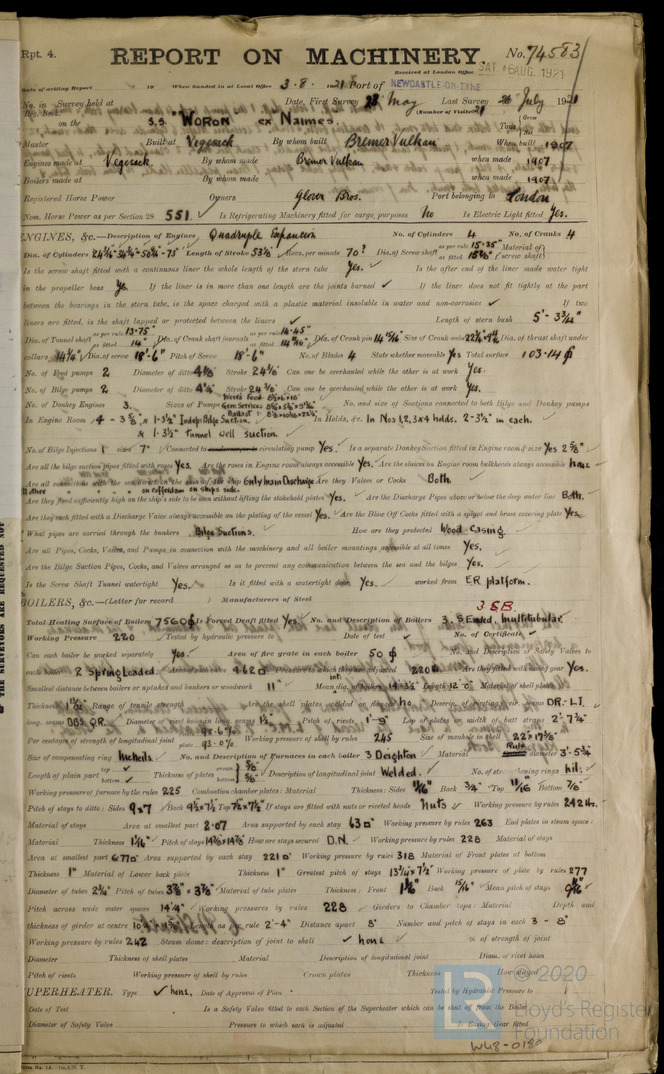 Rpt. 4.
REPORT ON MACHINERY. No. 74583
Received at London Office SAT. 6 AUG. 1921
Date of writing Report 19 When handed in at Local Office 3.8.1921 Port of NEWCASTLE-ON-TYNE
No. in Survey held at Date, First Survey 23 May Last Survey 26 July 1921
Reg. Book. (Number of Visits 21
on the S.S. "WORON" ex Naimes. Tons Gross Net
Master Built at Vegesack By whom built Bremer Vulkan When built 1907
Engines made at Vegesack. By whom made Bremer Vulkan when made 1907
Boilers made at By whom made when made 1907
Registered Horse Power Owners Glover Bros. Port belonging to London
Nom. Horse Power as per Section 28 551. Is Refrigerating Machinery fitted for cargo purposes No Is Electric Light fitted Yes.
ENGINES, &c.—Description of Engines Quadruple Expansion No. of Cylinders 4 No. of Cranks 4
Length of Stroke 53⅛ Revs. per minute 70? Dia. of Screw shaft as per rule 15.35" Material of screw shaft
Is the screw shaft fitted with a continuous liner the whole length of the stern tube Yes. Is the after end of the liner made water tight
in the propeller boss Yes If the liner is in more than one length are the joints burned ✓ If the liner does not fit tightly at the part
between the bearings in the stern tube, is the space charged with a plastic material insoluble in water and non-corrosive ✓ If two
liners are fitted, is the shaft lapped or protected between the liners ✓ Length of stern bush 5'-3¾"
Dia. of Tunnel shaft as per rule 13.75" as fitted 14" Dia. of Crank shaft journals as per rule 14.45" Dia. of Crank pin Size of Crank webs Dia. of thrust shaft under
collars 14¾" Dia. of screw 18'-6" Pitch of Screw 18'-6" No. of Blades 4 State whether moveable Yes Total surface 103.14
No. of Feed pumps 2 Diameter of ditto 4⅞ Stroke 24⅜ Can one be overhauled while the other is at work Yes.
No. of Bilge pumps 2 Diameter of ditto Stroke 24⅜ Can one be overhauled while the other is at work Yes.
No. of Donkey Engines 3. Sizes of Pumps No. and size of Suctions connected to both Bilge and Donkey pumps
In Engine Room 4 - 3⅜", & 1-3½" Indep. Bilge Suction. In Holds, &c. In Nos 1,2,3 & 4 holds. 2-3½" in each.
& 1-3½" Tunnel Well Suction.
No. of Bilge Injections 1 sizes 7" Connected to circulating pump Yes. Is a separate Donkey Suction fitted in Engine room & size Yes 2⅝"
Are all the bilge suction pipes fitted with roses Yes. Are the roses in Engine room always accessible Yes. Are the sluices on Engine room bulkheads always accessible none
Are all connections with the sea direct on the skin of the ship Only main Discharge Are they Valves or Cocks Both.
on cofferdam on ships side.
Are they fixed sufficiently high on the ship's side to be seen without lifting the stokehold plates Yes. Are the Discharge Pipes above or below the deep water line Both.
Are they each fitted with a Discharge Valve always accessible on the plating of the vessel Yes. Are the Blow Off Cocks fitted with a spigot and brass covering plate Yes.
What pipes are carried through the bunkers Bilge Suctions. How are they protected Wood Casing
Are all Pipes, Cocks, Valves, and Pumps in connection with the machinery and all boiler mountings accessible at all times Yes.
Are the Bilge Suction Pipes, Cocks, and Valves arranged so as to prevent any communication between the sea and the bilges Yes.
Is the Screw Shaft Tunnel watertight Yes. Is it fitted with a watertight door Yes. worked from ER platform.
BOILERS, &c.—(Letter for record ) Manufacturers of Steel
3 S.B.
Total Heating Surface of Boilers 7560 Is Forced Draft fitted Yes No. and Description of Boilers 3. S Ended. Multitubular.
Working Pressure 220 Tested by hydraulic pressure to Date of test ✓ No. of Certificate ✓
Can each boiler be worked separately Yes. Area of fire grate in each boiler 50 No. and Description of Safety Valves to
each boiler 2 Spring Loaded. Area of each valve 9.62 Pressure to which they are adjusted 220 Are they fitted with easing gear Yes.
Smallest distance between boilers or uptakes and bunkers or woodwork 11" Mean dia. of boilers Length 12'-0" Material of shell plates
Thickness Range of tensile strength Are the shell plates welded or flanged No Descrip. of riveting: cir. seams DR. LT.
long. seams DBS. QR. Diameter of rivet holes in long. seams 1½" Pitch of rivets Lap of plates or width of butt straps 2'-7¾"
Per centages of strength of longitudinal joint rivets plate Working pressure of shell by rules 245 Size of manhole in shell 22"×17⅜"
Size of compensating ring McNeils. No. and Description of Furnaces in each boiler 3 Deighton Material Outside diameter 3'-5¾"
Length of plain part top bottom Thickness of plates crown bottom ⅝" Description of longitudinal joint Welded. No. of strengthening rings nil.
Working pressure of furnace by the rules 225 Combustion chamber plates: Material Thickness: Sides 11/16" Back ¾" Top 11/16 Bottom ⅞"
Pitch of stays to ditto: Sides 9×7 Back 9½×7½ Top 7½×7½ If stays are fitted with nuts or riveted heads Nuts Working pressure by rules 242 lbs.
Material of stays Area at smallest part 2.07 Area supported by each stay 63 Working pressure by rules 263 End plates in steam space:
Material Thickness 1 1/16" Pitch of stays How are stays secured D.N. Working pressure by rules 228 Material of stays
Area at smallest part 6.770 Area supported by each stay 221 Working pressure by rules 318 Material of Front plates at bottom
Thickness 1" Material of Lower back plate Thickness 1" Greatest pitch of stays 13¾×7½ Working pressure of plate by rules 277
Diameter of tubes 2¾" Pitch of tubes 3⅞" × 3⅞" Material of tube plates Thickness: Front Back 15/16" Mean pitch of stays
Pitch across wide water spaces 14¼" Working pressures by rules 228 Girders to Chamber tops: Material Depth and
thickness of girder at centre Length as per rule 2'-4" Distance apart 8" Number and pitch of stays in each 3 - 8"
Working pressure by rules 242 Steam dome: description of joint to shell ✓ none % of strength of joint
Diameter Thickness of shell plates Material Description of longitudinal joint Diam. of rivet holes
Pitch of rivets Working pressure of shell by rules Crown plates Thickness How stayed
SUPERHEATER. Type ✓ none. Date of Approval of Plan Tested by Hydraulic Pressure to
Date of Test Is a Safety Valve fitted to each Section of the Superheater which can be shut off from the Boiler
Diameter of Safety Valve Pressure to which each is adjusted Is Easing Gear fitted
© 2020
LR
Lloyd's Register
Foundation
W48-0180
OF THE SURVEYORS ARE REQUESTED NOT